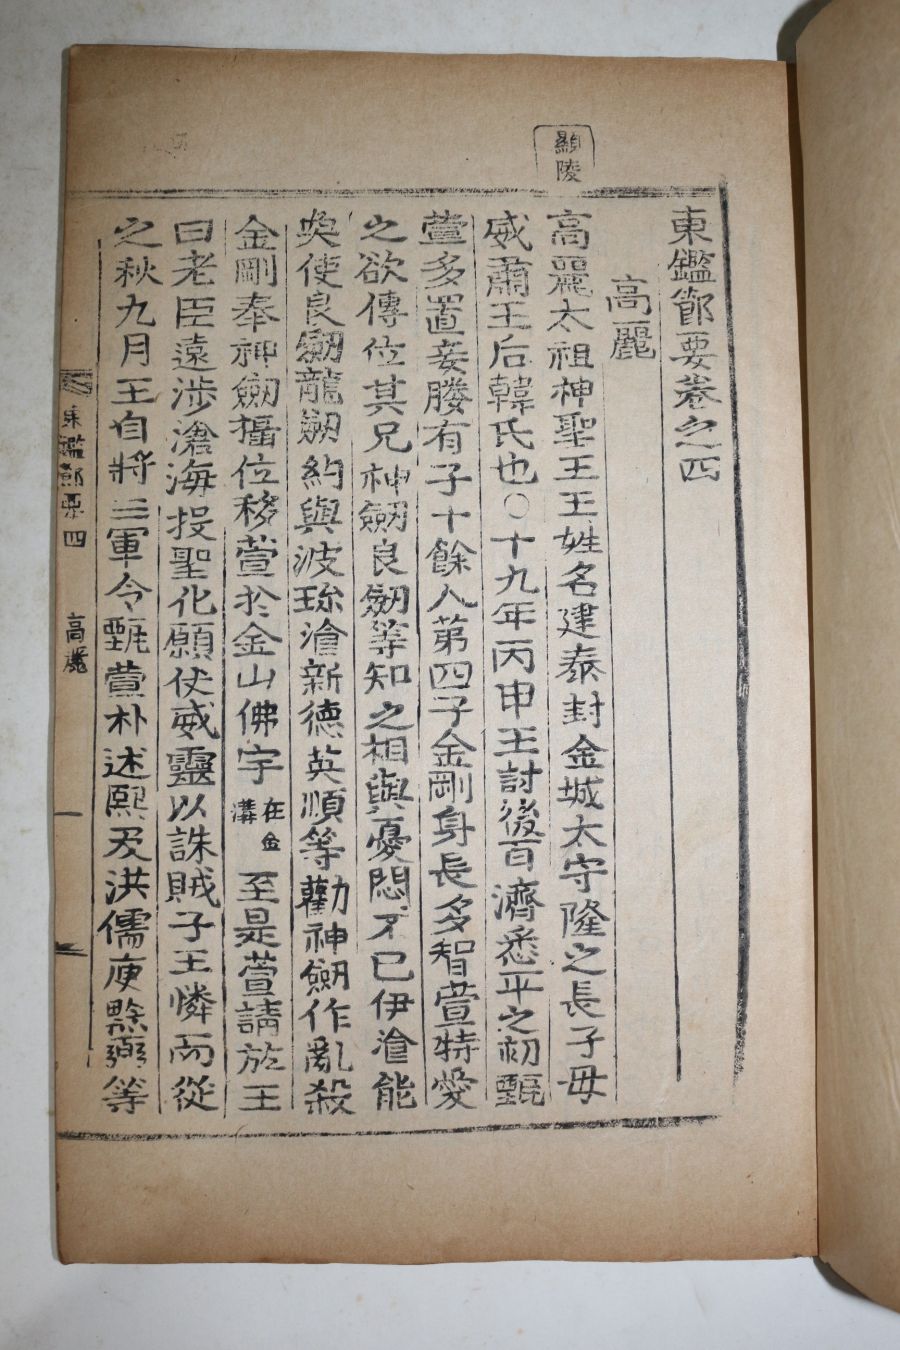 顯陵
東鑑節要卷之四
高麗
高麗太祖神聖王王姓名建泰封金城太守隆之長子母
威肅王后韓氏也〇十九年丙申王討後百濟悉平之初甄
萱多置妾媵有子十餘人第四子金剛身長多智萱特愛
之欲傳位其兄神劒良劒等知之相與憂悶不已伊飡能
奐使良劒龍劒約與波珍飡新德英順等勸神劒作亂殺
金剛奉神劒攝位移萱於金山佛宇在金溝至是萱請於王
曰老臣遠涉滄海投聖化願仗威靈以誅賊子王憐而從
之秋九月王自將三軍令甄萱朴述熙及洪儒庾黔弼等
東鑑節要四 高麗